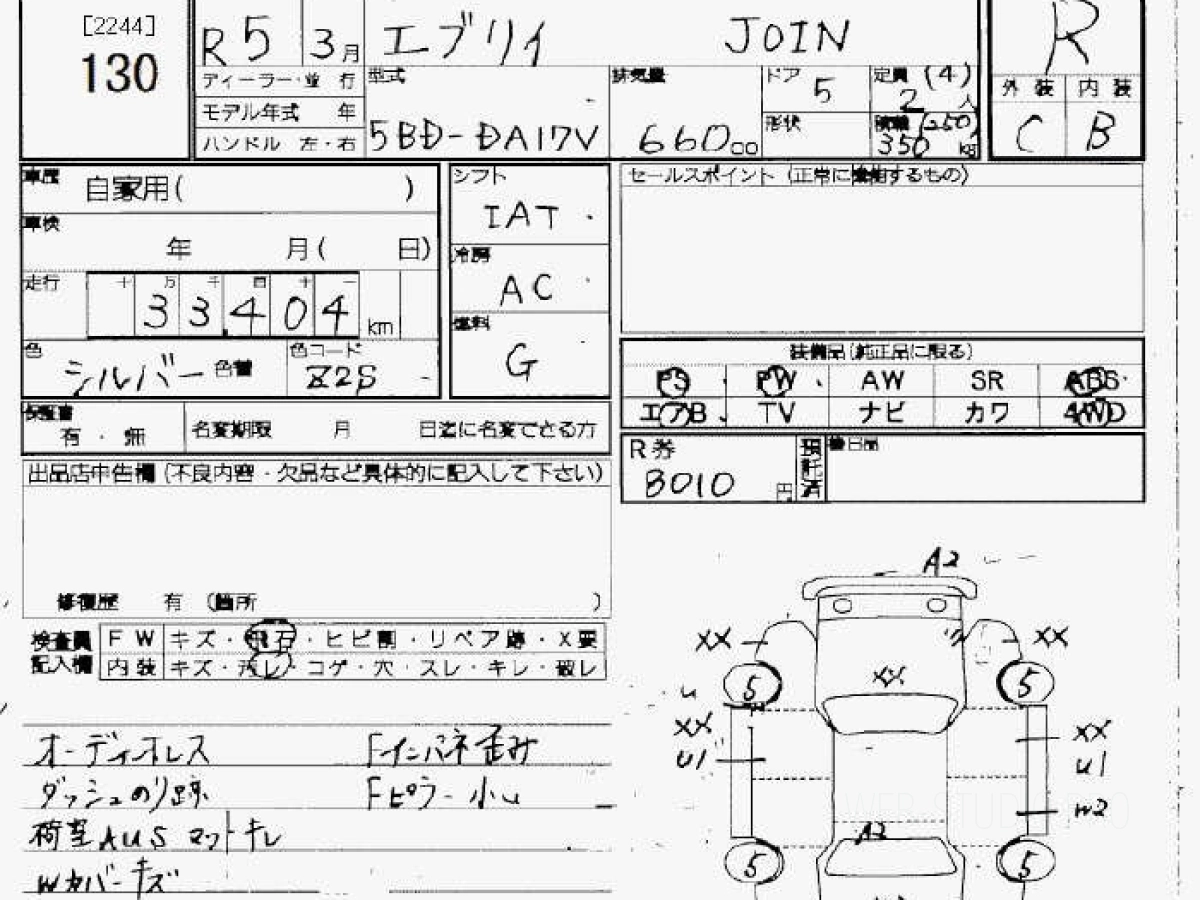 [2244]
130
R5 3月 エブリイ JOIN R
ディーラー・並行
モデル年式 年
ハンドル 左・右
型式 5BD-DA17V
排気量 660cc
ドア 5
形状
定員 (4) 2人
積載 (250) 350 kg
外装 内装
C B
車歴 自家用( )
車検 年 月( 日)
走行 十 万 千 百 十 一
33,404 km
色 シルバー 色替
色コード Z2S
シフト IAT
冷房 AC
燃料 G
セールスポイント (正常に機能するもの)
装備品(純正品に限る)
PS PW AW SR ABS
エアB TV ナビ カワ 4WD
保証書 有・無
名変期限 月 日迄に名変できる方
R券 8010円 預託済
後日品
出品店申告欄(不良内容・欠品など具体的に記入して下さい)
修復歴 有 (箇所 )
検査員記入欄
FW キズ・飛石・ヒビ割・リペア跡・X要
内装 キズ・汚レ・コゲ・穴・スレ・キレ・破レ
オーディオレス Fインパネ歪み
ダッシュのり跡 Fピラー小U
荷室AUSマットキレ
Wカバーキズ
A2
XX XX
XX
5 5
U
XX XX
U1 U1
W2
A2
5 5